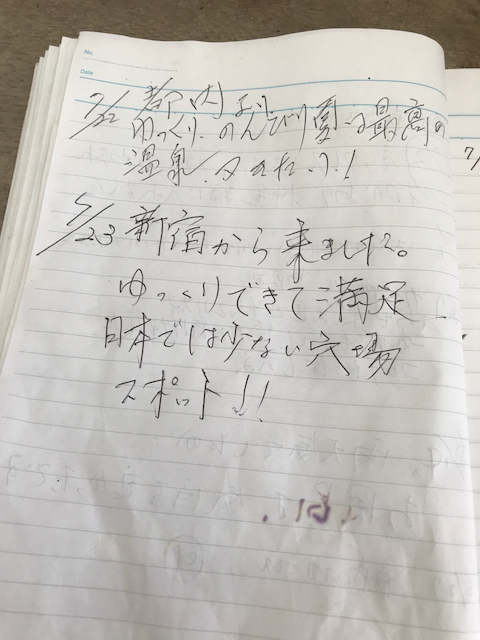 No.
Date
7/22 都内より
ゆっくり、のんびり 最高の
温泉 又来たい!
5/23 新宿から来ました。
ゆっくりできて満足
日本では少ない穴場
スポット!!
7/